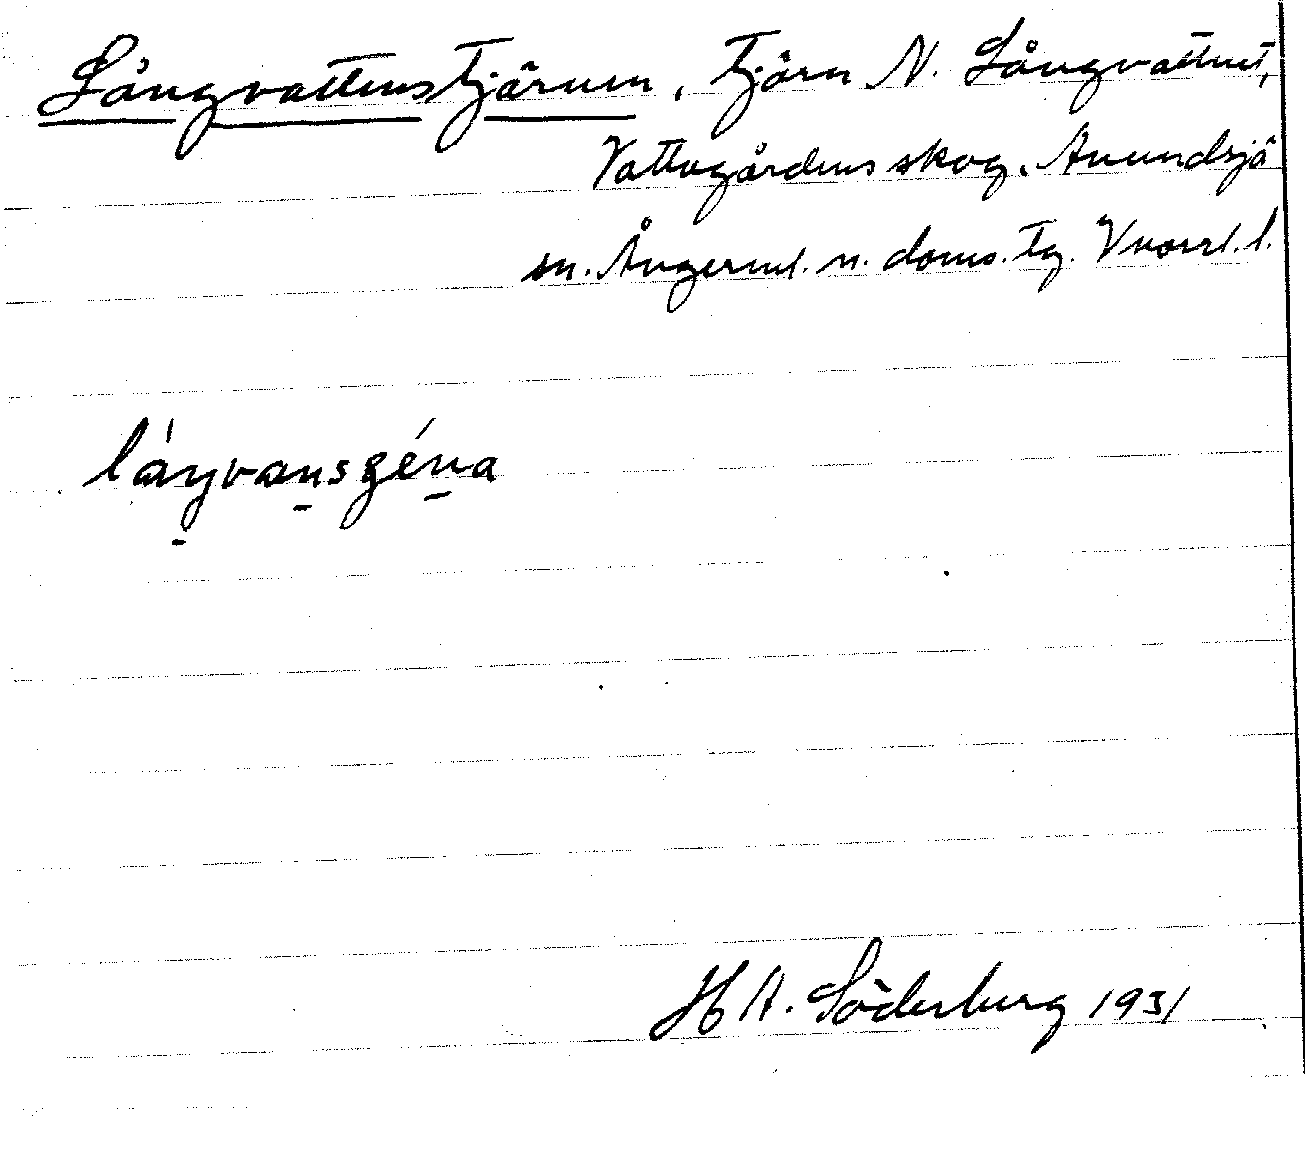 Långvattenstjärnen, Tjärn N. Långvattnet,
Vattugårdens skog, Anundsjö
sn. Ångerml. n. doms. tg. Vnorrl. l.
låŋvansgéna
H A. Söderberg 1931